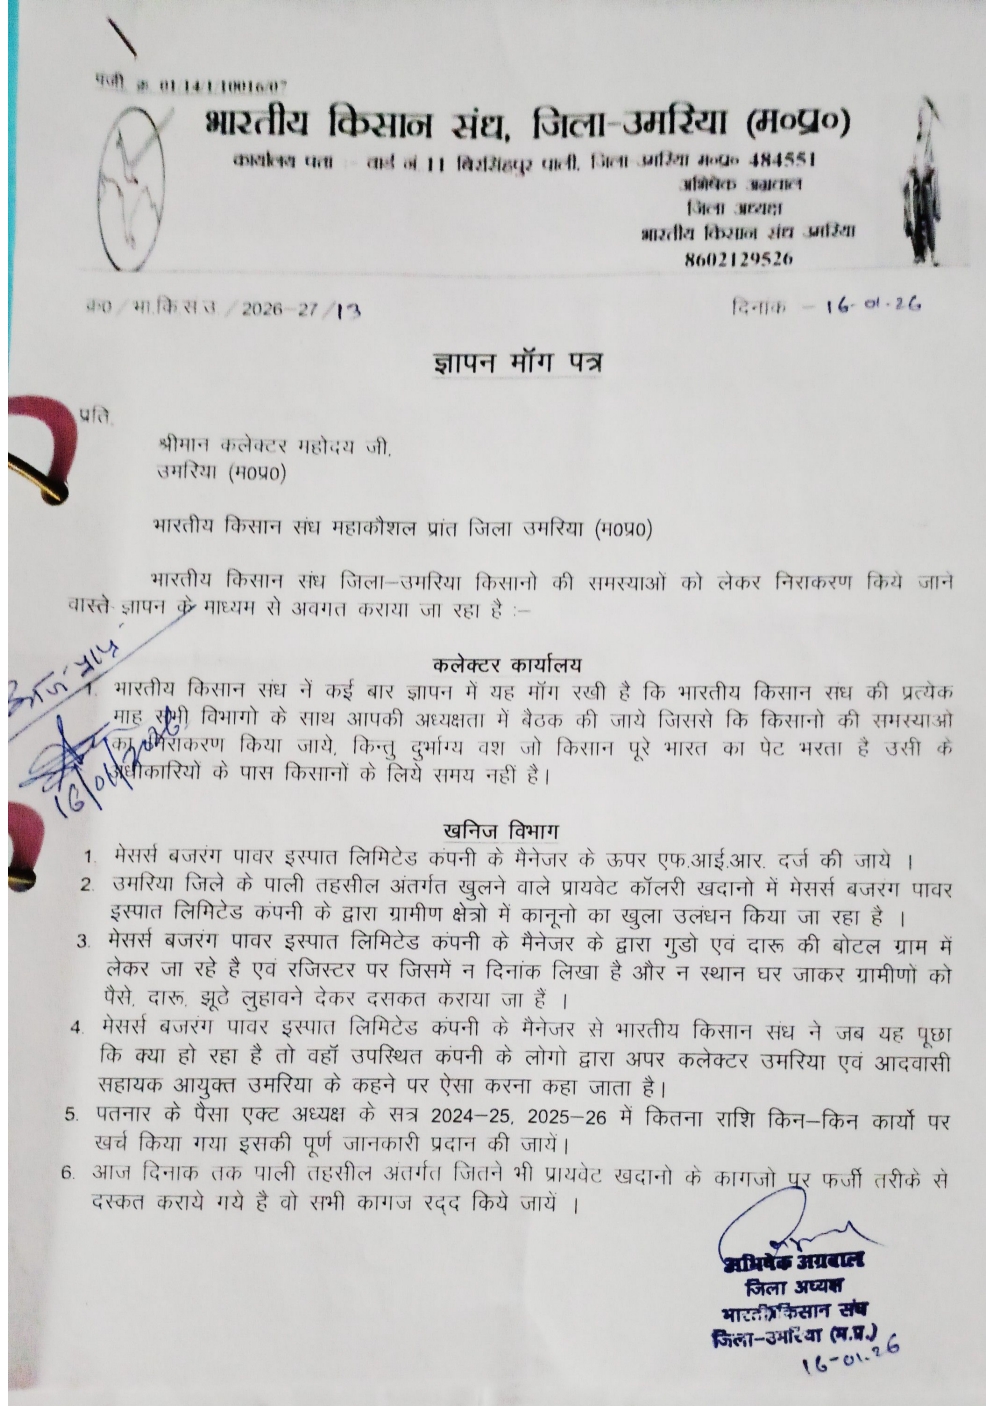 पंजी क्र. 01/14/1/10016/07
भारतीय किसान संध, जिला-उमरिया (म०प्र०)
कार्यालय पता - वार्ड नं 11 बिरसिंहपुर पाली, जिला उमरिया म०प्र० 484551
अभिषेक अग्रवाल
जिला अध्यक्ष
भारतीय किसान संध उमरिया
8602129526
क0 / भा.कि स उ / 2026-27 /13
दिनाक - 16-01-26
ज्ञापन मॉग पत्र
प्रति,
श्रीमान कलेक्टर महोदय जी,
उमरिया (म0प्र0)
भारतीय किसान संध महाकौशल प्रांत जिला उमरिया (म0प्र0)
भारतीय किसान संध जिला-उमरिया किसानो की समस्याओं को लेकर निराकरण किये जाने
वास्ते ज्ञापन के माध्यम से अवगत कराया जा रहा है :-
कलेक्टर कार्यालय
1. भारतीय किसान संध नें कई बार ज्ञापन में यह मॉग रखी है कि भारतीय किसान संध की प्रत्येक
माह सभी विभागो के साथ आपकी अध्यक्षता में बैठक की जाये जिससे कि किसानो की समस्याओ
का निराकरण किया जाये, किन्तु दुर्भाग्य वश जो किसान पूरे भारत का पेट भरता है उसी के
अधीकारियो के पास किसानों के लिये समय नहीं है।
16/01/2026
खनिज विभाग
1. मेसर्स बजरंग पावर इस्पात लिमिटेड कंपनी के मैनेजर के ऊपर एफ.आई.आर. दर्ज की जाये ।
2. उमरिया जिले के पाली तहसील अंतर्गत खुलने वाले प्रायवेट कॉलरी खदानो में मेसर्स बजरंग पावर
इस्पात लिमिटेड कंपनी के द्वारा ग्रामीण क्षेत्रो में कानूनो का खुला उलंधन किया जा रहा है ।
3. मेसर्स बजरंग पावर इस्पात लिमिटेड कंपनी के मैनेजर के द्वारा गुडो एवं दारू की बोटल ग्राम में
लेकर जा रहे है एवं रजिस्टर पर जिसमें न दिनांक लिखा है और न स्थान घर जाकर ग्रामीणों को
पैसे, दारू, झूठे लुहावने देकर दसकत कराया जा हैं ।
4. मेसर्स बजरंग पावर इस्पात लिमिटेड कंपनी के मैनेजर से भारतीय किसान संध ने जब यह पूछा
कि क्या हो रहा है तो वहॉ उपस्थित कंपनी के लोगो द्वारा अपर कलेक्टर उमरिया एवं आदवासी
सहायक आयुक्त उमरिया के कहने पर ऐसा करना कहा जाता है।
5. पतनार के पैसा एक्ट अध्यक्ष के सत्र 2024-25, 2025-26 में कितना राशि किन-किन कार्यो पर
खर्च किया गया इसकी पूर्ण जानकारी प्रदान की जायें।
6. आज दिनाक तक पाली तहसील अंतर्गत जितने भी प्रायवेट खदानो के कागजो पर फर्जी तरीके से
दस्कत कराये गये है वो सभी कागज रद्द किये जायें ।
अभिषेक अग्रवाल
जिला अध्यक्ष
भारतीय किसान संघ
जिला-उमरिया (म.प्र.)
16-01-26